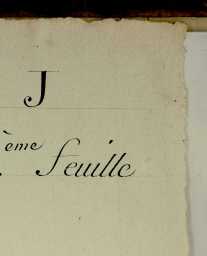 J
ème feuille